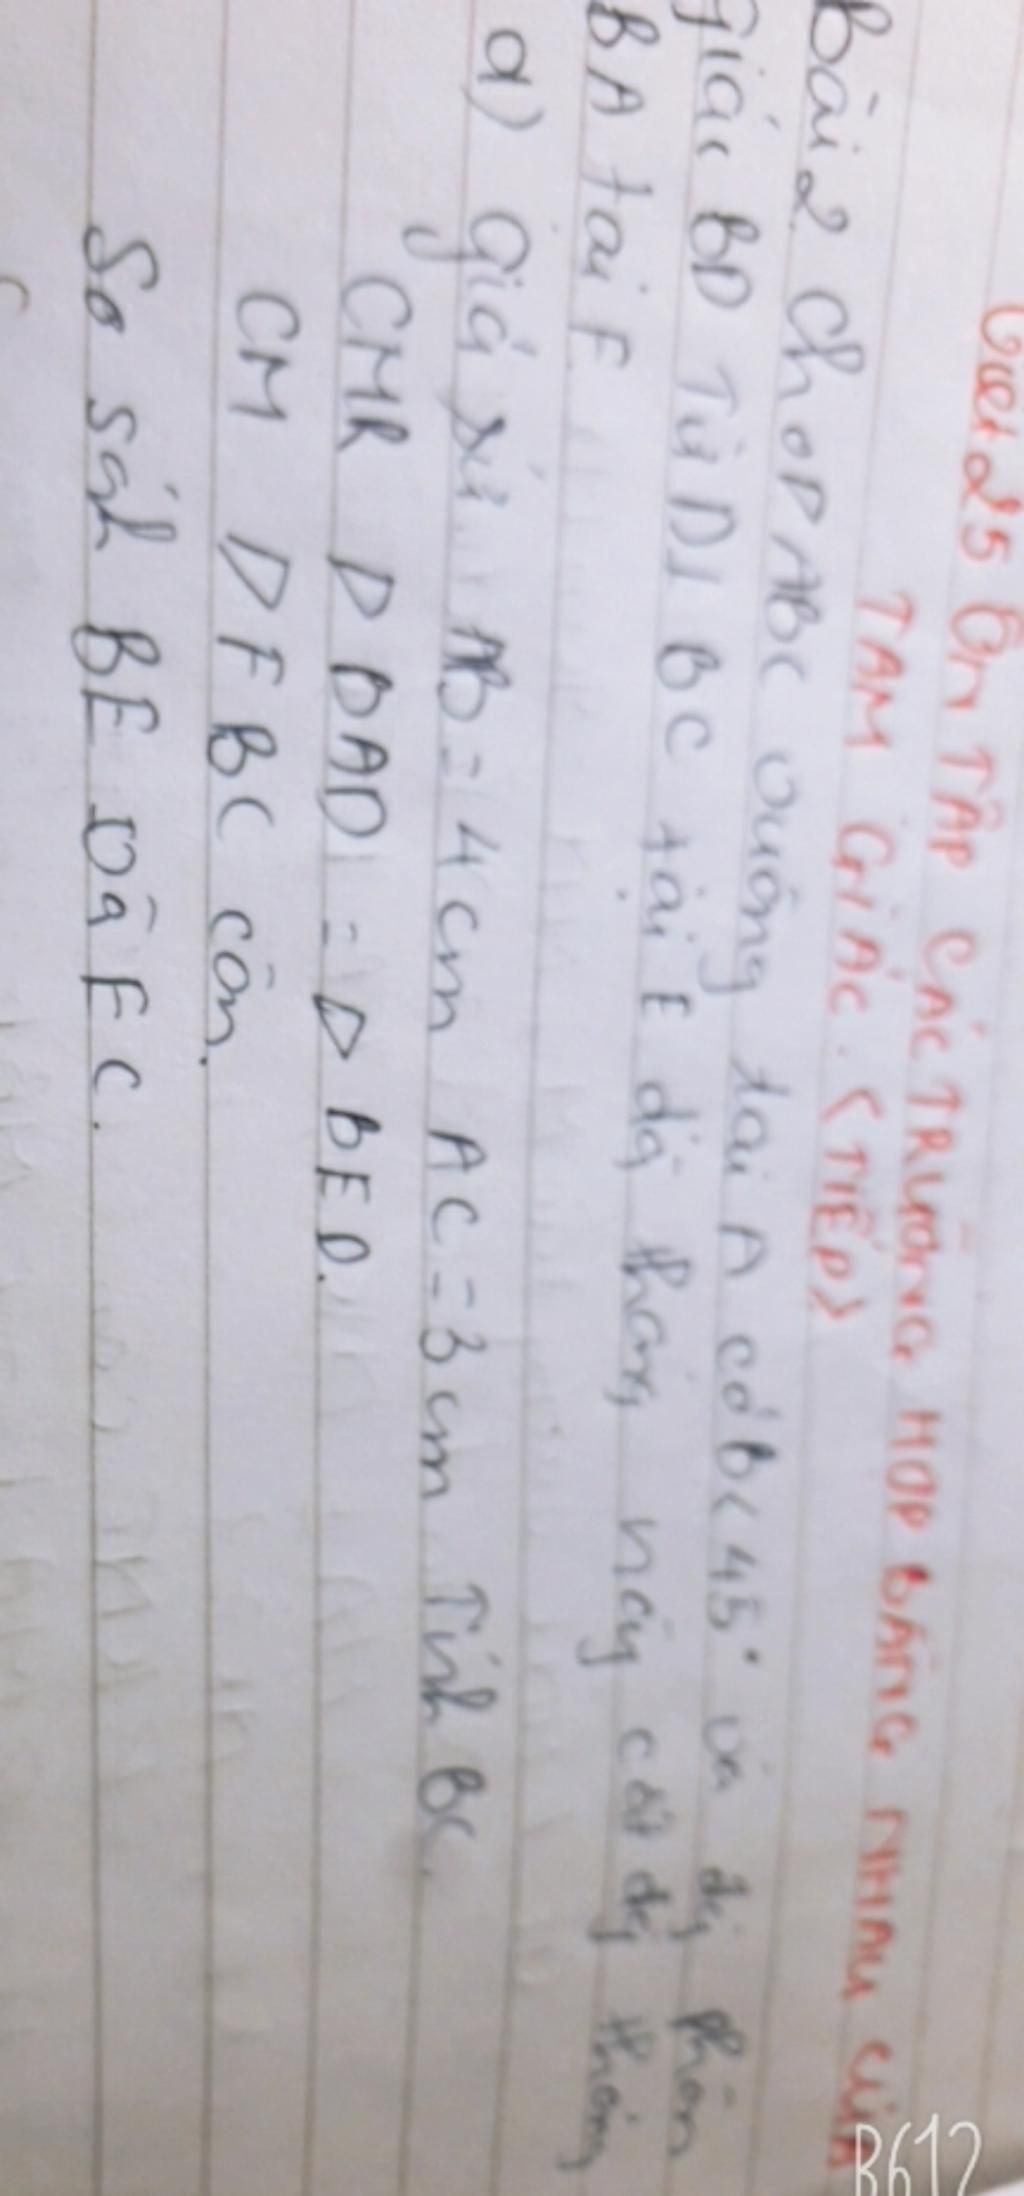 Tiết 25 ÔN TẬP CÁC TRƯỜNG HỢP BẰNG NHAU CỦA
TAM GIÁC. (TIẾP)
Bài 2 Cho Δ ABC vuông tại A có B < 45° và đg phân
giác BD Từ D ⊥ BC tại E đg thẳng này cắt đg thẳng
BA tại F
a) Giả xử AB = 4 cm AC = 3 cm Tính BC.
CMR Δ BAD = Δ BED.
CM Δ FBC cân.
So sánh BE và FC.
B612